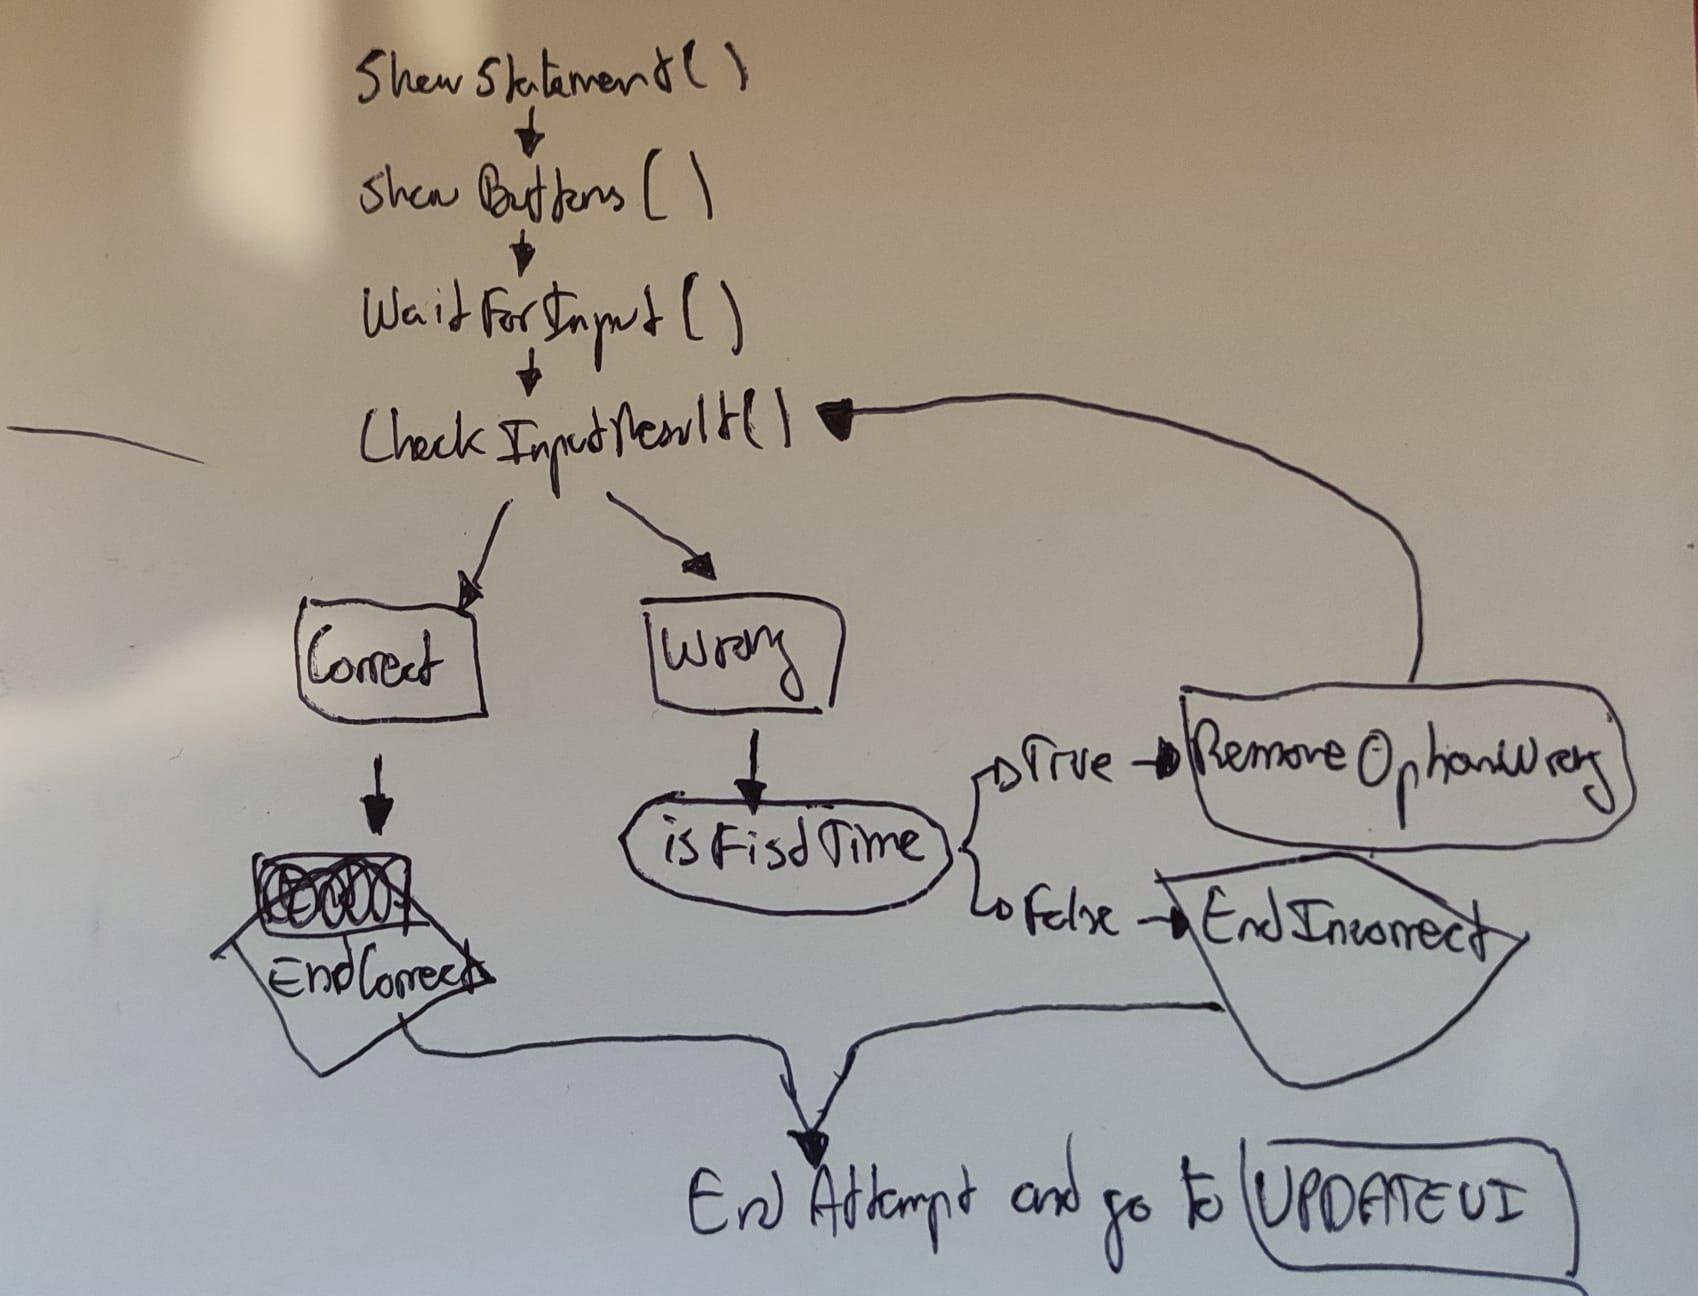 ShowStatement()
Show Buttons()
WaitForInput()
CheckInputResult()
Correct
Wrong
True
RemoveOptionWrong
isFistTime
False
EndIncorrect
EndCorrect
End Attempt and go to UPDATEUI